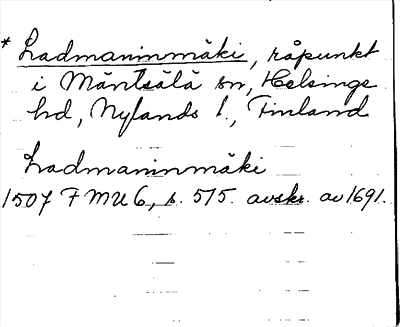 * Ladmaninmäki, råpunkt
i Mäntsälä sn, Helsinge
hd, Nylands l., Finland
Ladmaninmäki
1507 FMU 6, s. 515. avskr. av 1691.